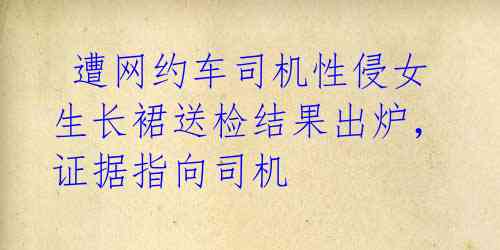 遭网约车司机性侵女
生长裙送检结果出炉，
证据指向司机